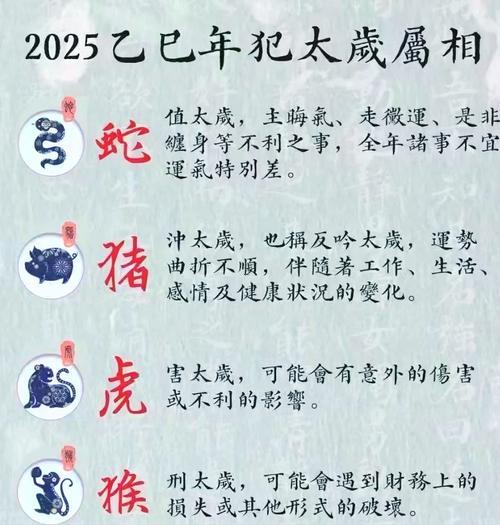 2025乙巳年犯太歲屬相
蛇
蛇
值太歲，主晦氣、走黴運、是非
纏身等不利之事，全年諸事不宜
運氣特別差。
豬
沖太歲，也稱反吟太歲，運勢
曲折不順，伴隨著工作、生活、
感情及健康狀況的變化。
虎
虎
害太歲，可能會有意外的傷害
或不利的影響。
猴
猴
刑太歲，可能會遇到財務上的
損失或其他形式的破壞。